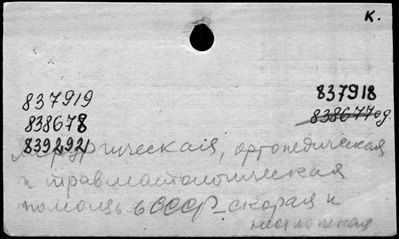 К.
837919
837918
838677од
838678
839292
Хирургическая, ортопедическая
и травматологическая
помощь в СССР - скорая и
неотложная